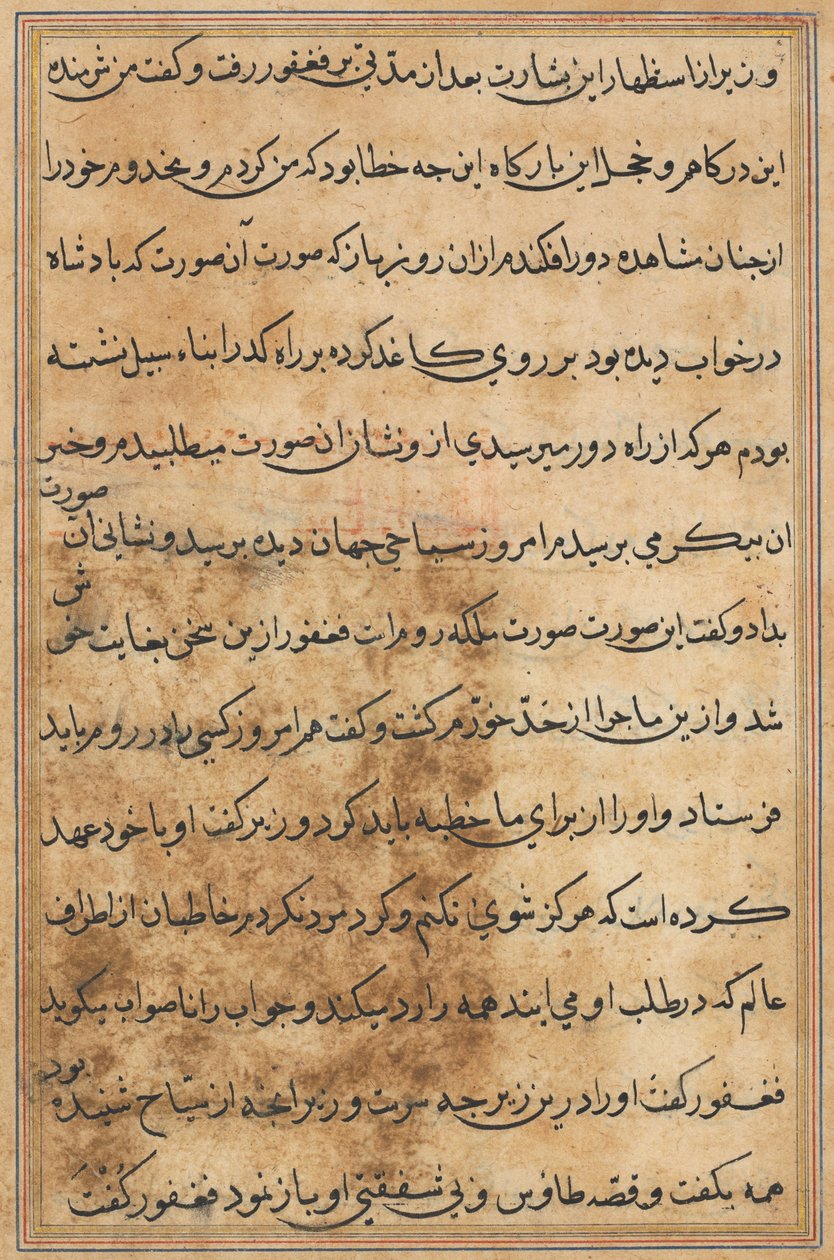 وزیر از استظهار این بشارت بعد ان مدّتی بر فغفور رفت و کفت من شرمنده
این درکاهم و خجل این بارکاه این جه خطا بود که من کردم و مخدوم خود را
از جنان مشاهده دور افکندم از ان روز باز که صورت آن صورت که بادشاه
در خواب دیده بود بر روی کاغد کرده بر راه کدر ابناء سبیل نشسته
بودم هر که از راه دور میرسیدی از و نشان ان صورت میطلبیدم و خبر
ان بیکر می برسیدم امروز سیاحی جهان دیده برسید و نشانی ان صورت
بداد و کفت این صورت صورت ملکه روم است فغفور ازین سخن بغایت خوش
شد و ازین ماجرا از حدّ خوّرم کشت و کفت هم امروز کسی را در روم باید
فرستاد و او را از برای ما خطبه باید کرد وزیر کفت او با خود عهد
کرده است که هرکز شوی نکنم و کرد مرد نکردم خاطبان از اطراف
عالم که در طلب او می ایند همه را رد میکند و جواب را ناصواب میکوید
فغفور کفت او را درین زیر جه سرست وزیر انجه از سیّاح شنیده بود
همه بکفت و قصّه طاؤس و بی شفقتی او باز نمود فغفور کُفْتَ